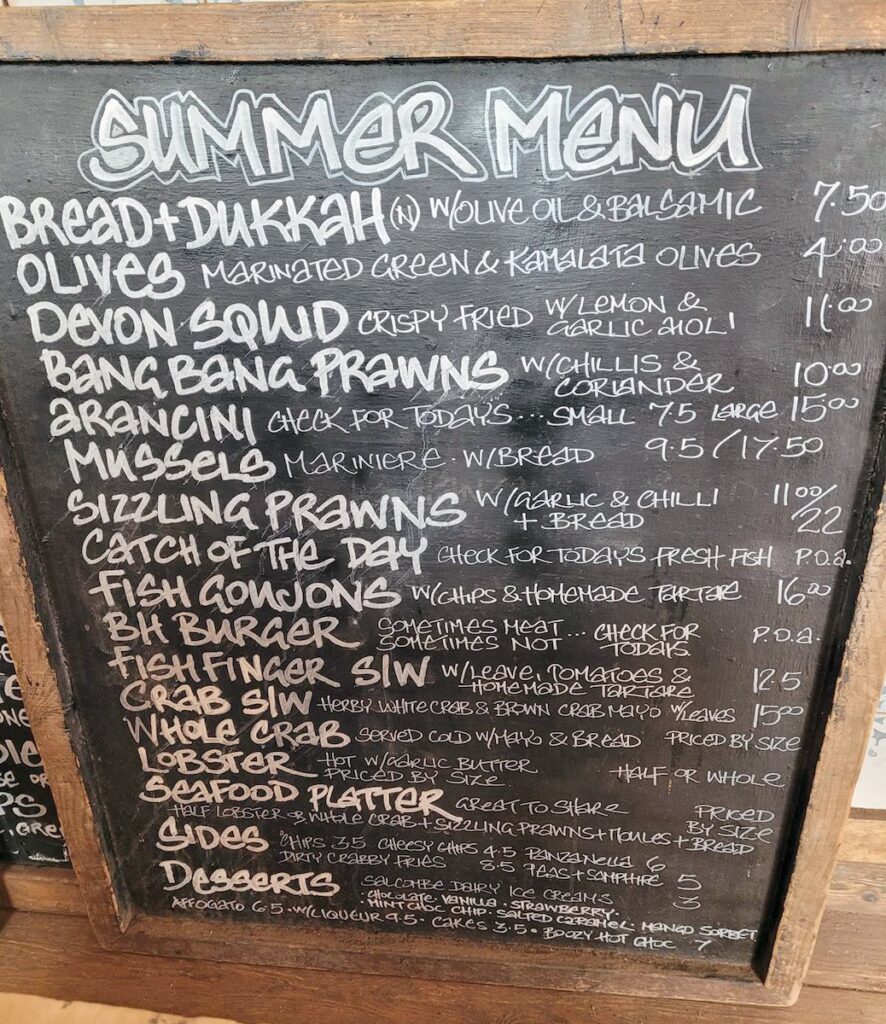 SUMMER MENU
BREAD + DUKKAH (N) W/OLIVE OIL & BALSAMIC 7.50
OLIVES MARINATED GREEN & KAMALATA OLIVES 4.00
DEVON SQUID CRISPY FRIED W/LEMON & GARLIC AIOLI 11.00
BANG BANG PRAWNS W/CHILLIS & CORIANDER 10.00
ARANCINI CHECK FOR TODAYS... SMALL 7.5 LARGE 15.00
MUSSELS MARINIERE . W/BREAD 9.5/17.50
SIZZLING PRAWNS W/GARLIC & CHILLI + BREAD 11.00/22
CATCH OF THE DAY CHECK FOR TODAYS FRESH FISH P.O.A.
FISH GOUJONS W/CHIPS & HOMEMADE TARTARE 16.00
BH BURGER SOMETIMES MEAT... SOMETIMES NOT CHECK FOR TODAYS P.O.A.
FISH FINGER S/W W/LEAVE, TOMATOES & HOMEMADE TARTARE 12.5
CRAB S/W HERBY WHITE CRAB & BROWN CRAB MAYO W/LEAVES 15.00
WHOLE CRAB SERVED COLD W/MAYO & BREAD PRICED BY SIZE
LOBSTER HOT W/GARLIC BUTTER PRICED BY SIZE HALF OR WHOLE
SEAFOOD PLATTER GREAT TO SHARE PRICED BY SIZE
HALF LOBSTER OR WHOLE CRAB + SIZZLING PRAWNS + MOULES + BREAD
SIDES CHIPS 3.5 CHEESY CHIPS 4.5 PANZANELLA 6
DIRTY CRABBY FRIES 8.5 PEAS + SAMPHIRE 5
DESSERTS SALCOMBE DAIRY ICE CREAMS 3
. CHOCOLATE . VANILLA . STRAWBERRY .
. MINT CHOC CHIP . SALTED CARAMEL . MANGO SORBET
AFFOGATO 6.5 . W/LIQUEUR 9.5 . CAKES 3.5 . BOOZY HOT CHOC 7